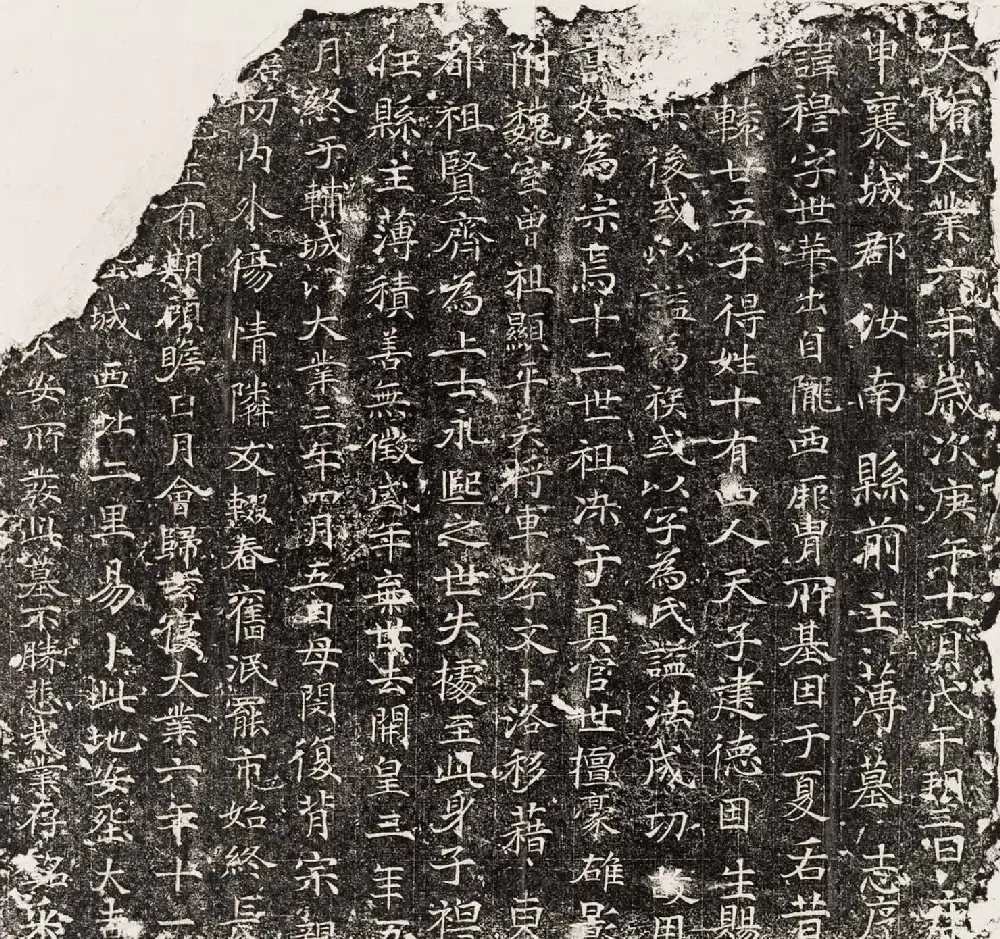 大隋大業六年歲次庚午十一月戊午朔三日
申襄城郡汝南縣前主薄墓志序
諱穆字世華出自隴西厥胄所基因于夏后昔
轅廿五子得姓十有四人天子建德因生賜
後或以謚為族或以字為氏謚法咸切故用
姓為宗焉十二世祖深于真官世擅豪雄
附魏室曾祖顯平吴將軍孝文卜洛移藉東
都祖賢齊為上士永熙之世失據至此身子袒
任縣主薄積善無徵盛年棄世去開皇三年五
月終于輔城以大業三年四月五日母閔復背宗親
初內外傷情隣友輟春舊泯罷市始終長
有期顧瞻日月會歸復大業六年十一
城西北二里易卜此地安厝大吉
安所葬此墓不勝悲哉業存銘